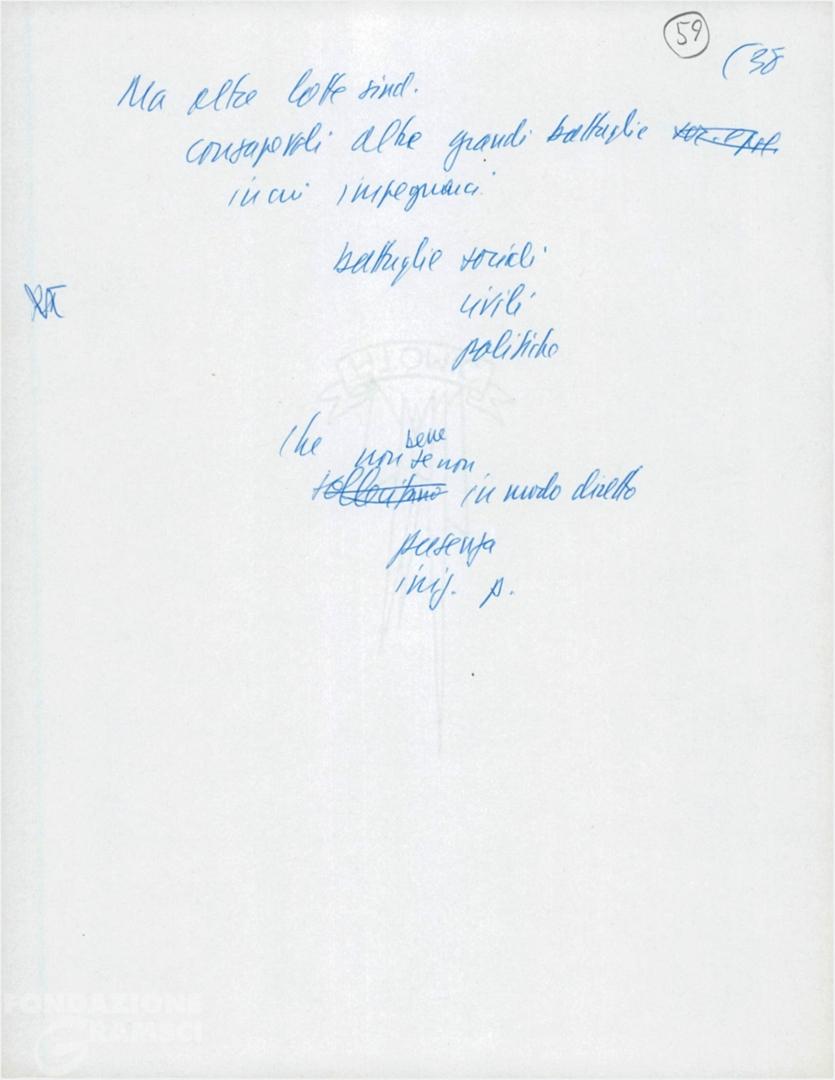 59
(38
Ma oltre lotte sind.
consapevoli altre grandi battaglie
in cui impegnarci
battaglie sociali
civili
politiche
che bene
non se non
sollecitano in modo diretto
presenza
iniz. p.
FONDAZIONE
GRAMSCI